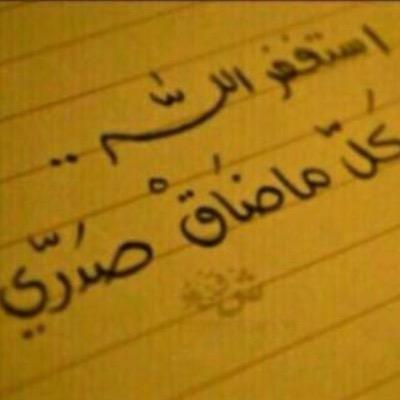 استغفر اللّه ..
كُلّ ماضاقْ صَدَرّي